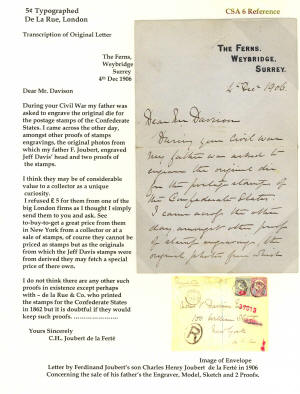 5¢ Typographed
De La Rue, London
CSA 6 Reference
Transcription of Original Letter
The Ferns,
Weybridge
Surrey
4th Dec 1906
Dear Mr. Davison
During your Civil War my father was
asked to engrave the original die for
the postage stamps of the Confederate
States. I came across the other day,
amongst other proofs of stamps
engravings, the original photos from
which my father F. Joubert, engraved
Jeff Davis' head and two proofs of
the stamps.
I think they may be of considerable
value to a collector as a unique
curiosity.
I refused £ 5 for them from one of the
big London firms as I thought I simply
send them to you and ask. See
to-buy-to-get a great price from them
in New York from a collector or at a
sale of stamps, of course they cannot be
priced as stamps but as the originals
from which the Jeff Davis stamps were
from derived they may fetch a special
price of there own.
I do not think there are any other such
proofs in existence except perhaps
with – de la Rue & Co. who printed
the stamps for the Confederate States
in 1862 but it is doubtful if they would
keep such proofs. ........................
Yours Sincerely
C.H., Joubert de la Ferté
THE FERNS.
WEYBRIDGE,
SURREY.
4 Dec 1906.
Dear Mr Davison
During your Civil War
my father was asked to
engrave the original die
for the postage stamps of
the Confederate States.
I came across the other
day amongst other proofs
of stamp engravings the
original photos from
R
Image of Envelope
Letter by Ferdinand Joubert's son Charles Henry Joubert de la Ferté in 1906
Concerning the sale of his father's the Engraver, Model, Sketch and 2 Proofs.